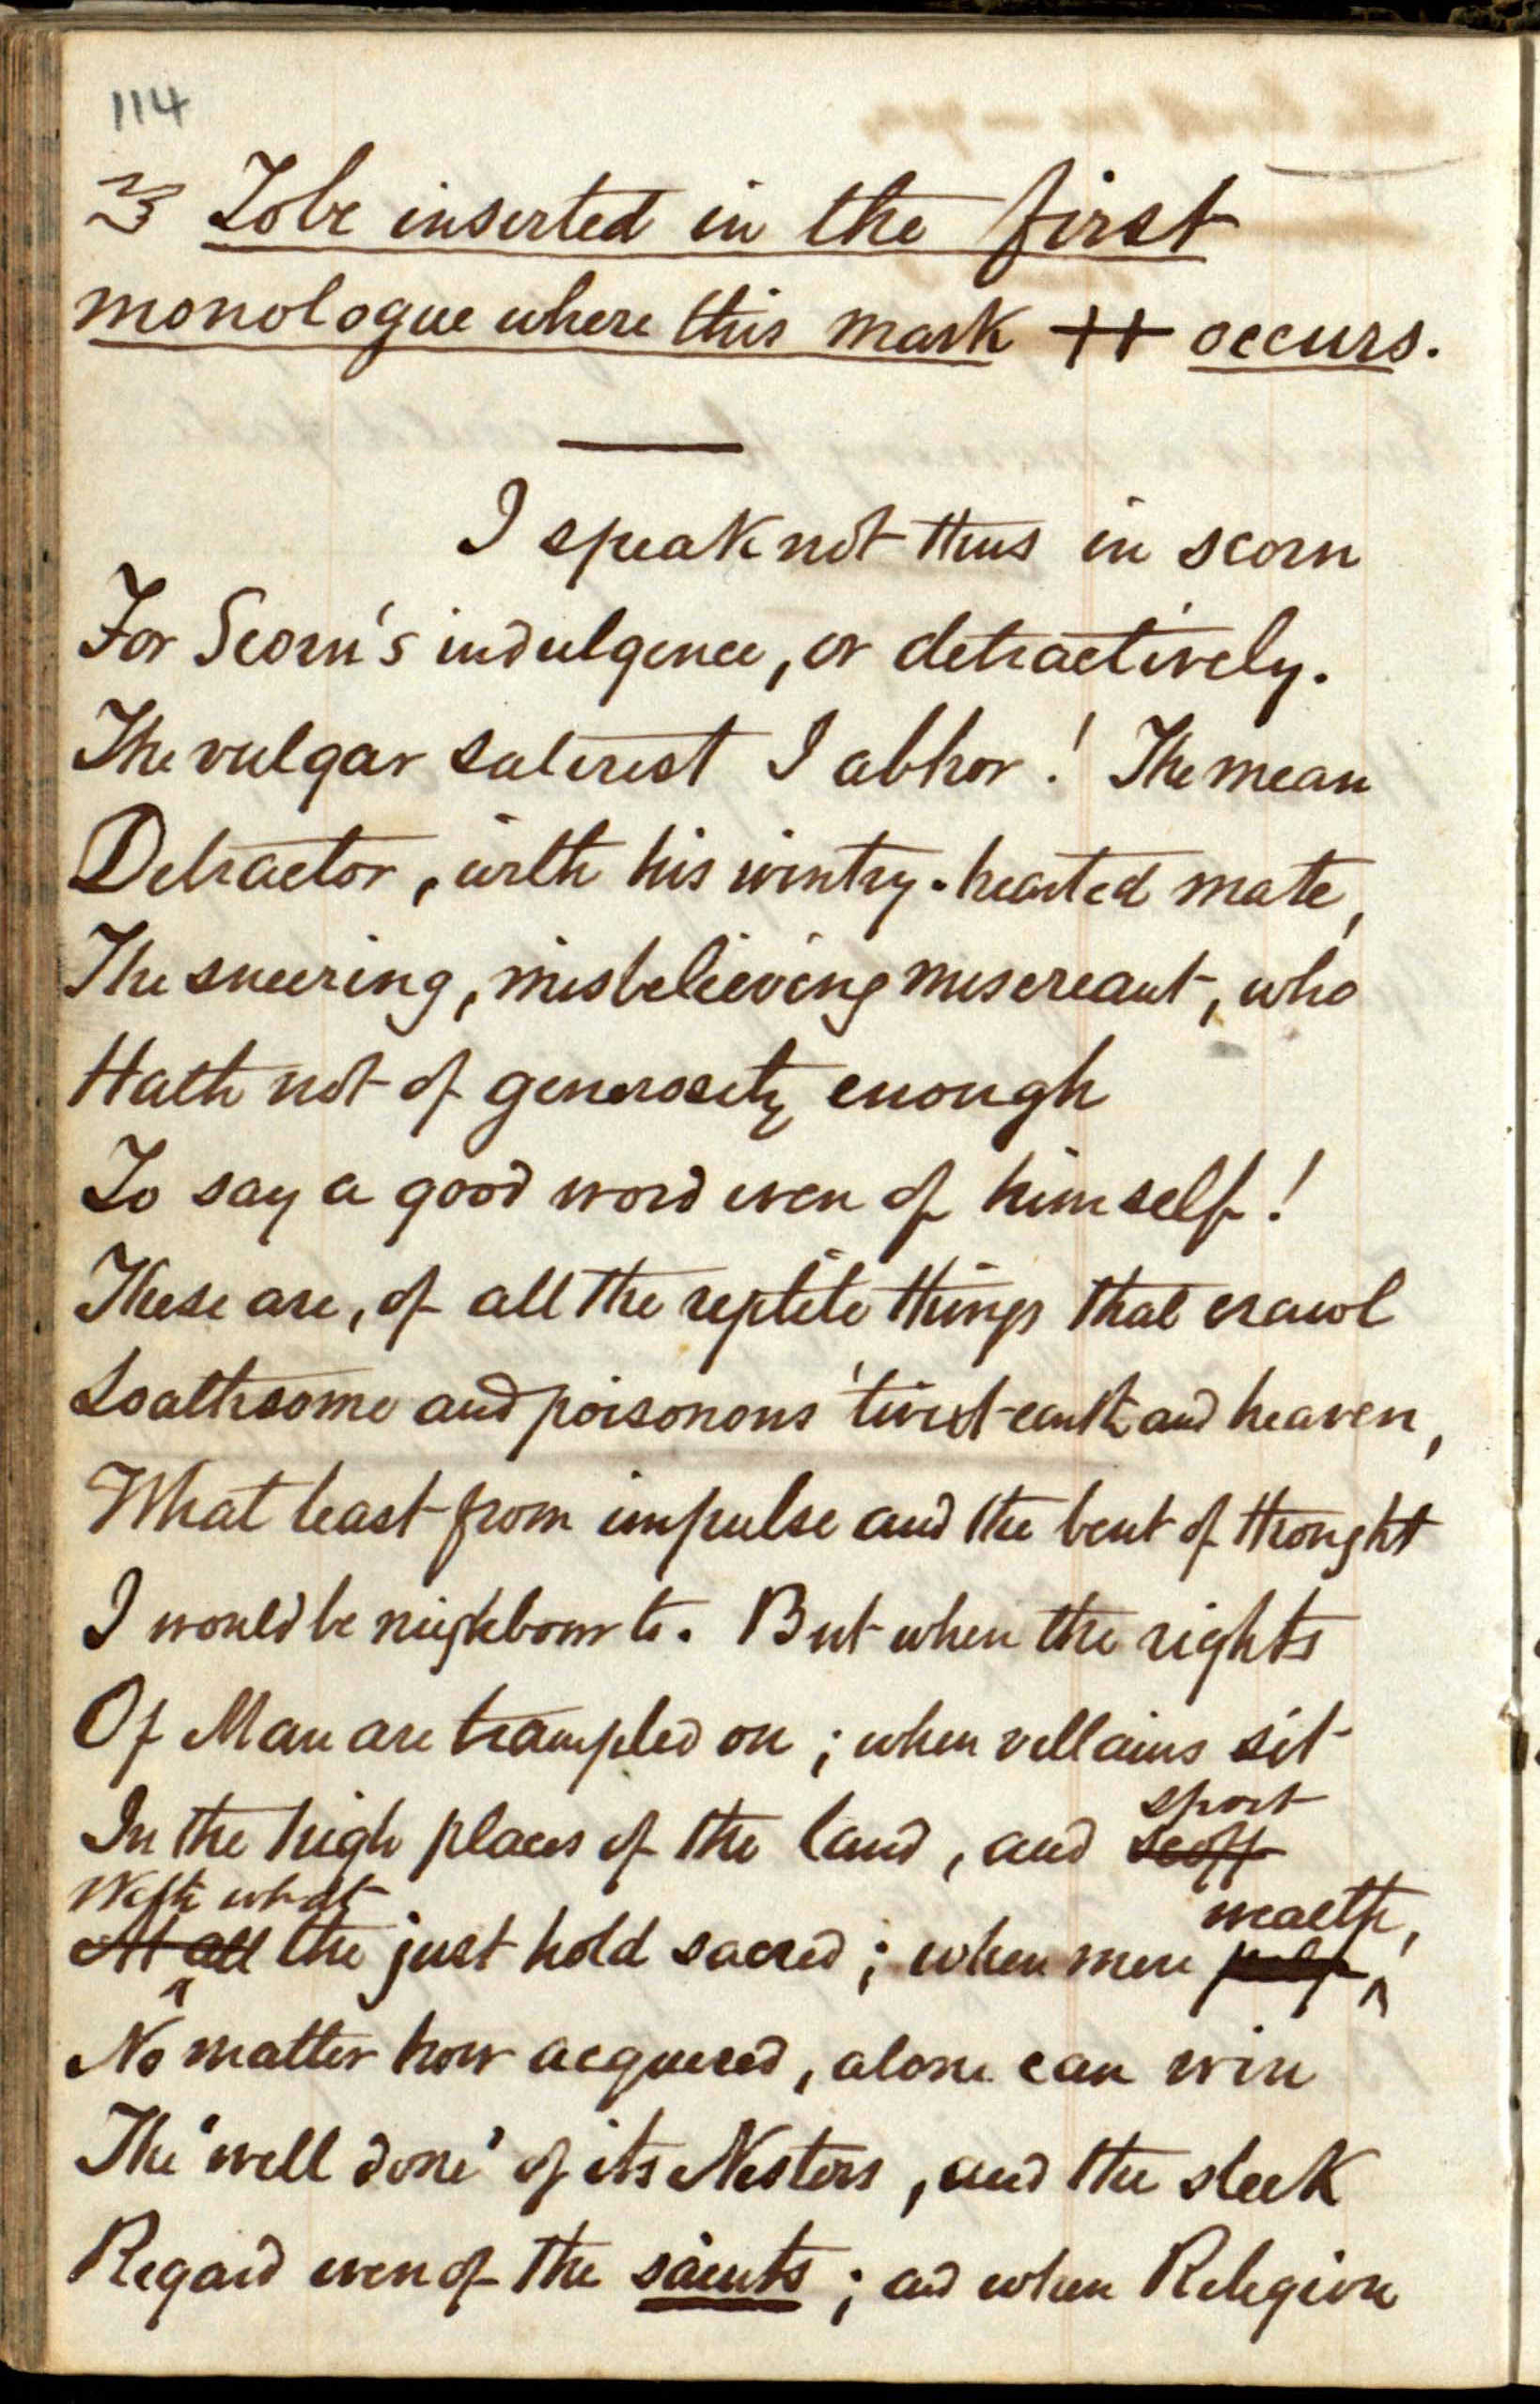 114
To be inserted in the first
monologue where this mark ++ occurs.
I speak not thus in scorn
For Scorn's indulgence, or detractively.
The vulgar saterist I abhor! The mean
Detractor, with his wintry-hearted mate,
The sneering, misbelieving miscreant, who
Hath not of generosity enough
To say a good word even of himself!
These are, of all the reptile things that crawl
Loathsome and poisonous 'twixt earth and heaven,
What least from impulse and the bent of thought
I would be neighbour to. But when the rights
Of Man are trampled on; when villains sit
sport
In the high places of the land, and scoff
With what wealth,
At all the just hold sacred; when mere pelf
No matter how acquired, alone can win
The "well done" of its Nestors, and the sleek
Regard even of the saints; and when Religion